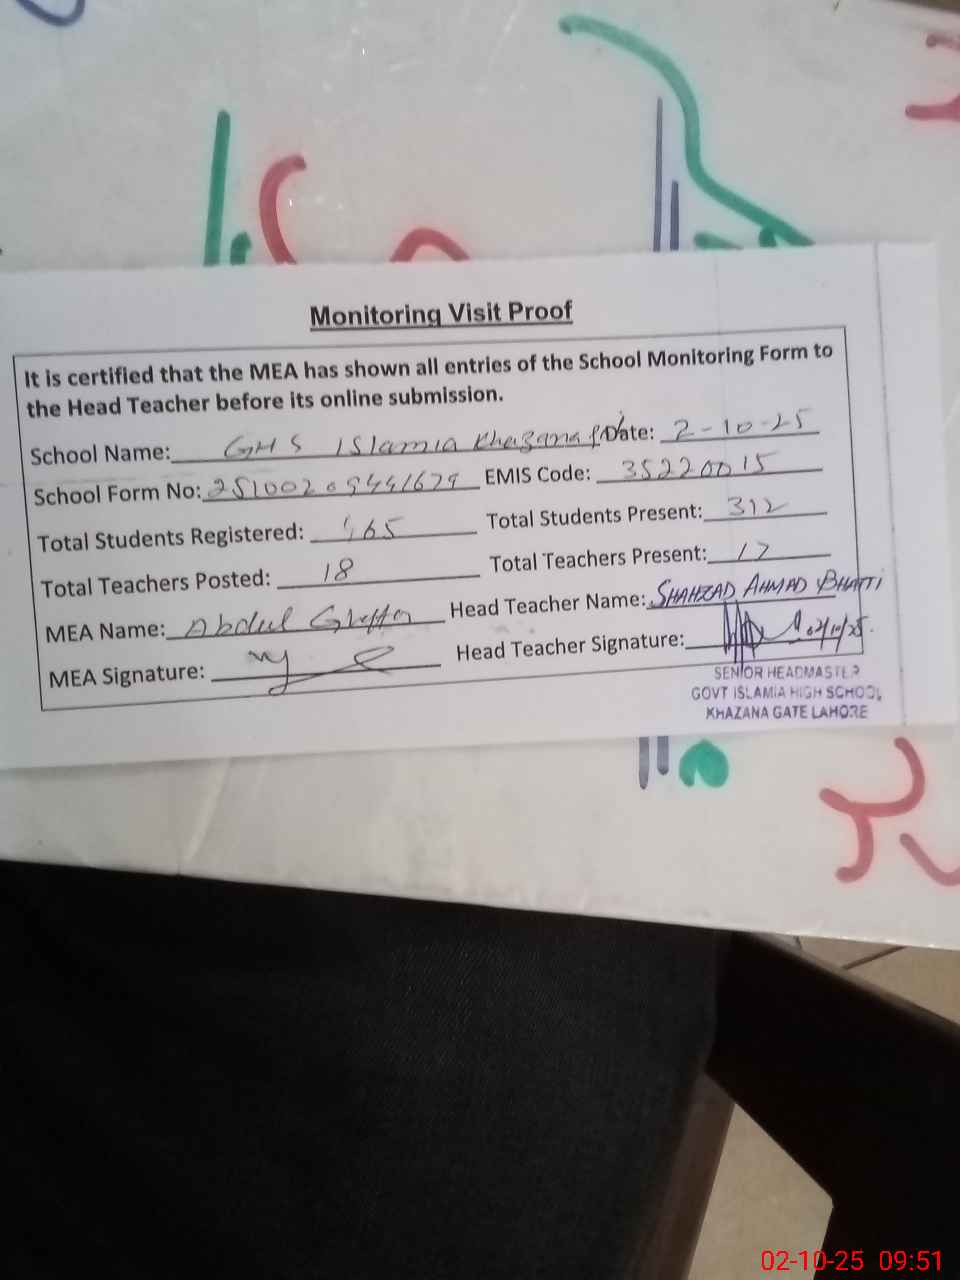 Monitoring Visit Proof
It is certified that the MEA has shown all entries of the School Monitoring Form to
the Head Teacher before its online submission.
School Name: GHS Islamia Khazana Date: 2-10-25
School Form No: EMIS Code: 35220015
Total Students Registered: 465 Total Students Present: 312
Total Teachers Posted: 18 Total Teachers Present: 17
MEA Name: Abdul Ghaffar Head Teacher Name: SHAHZAD AHMAD BHATTI
MEA Signature: Head Teacher Signature: 02/10/25.
SENIOR HEADMASTER
GOVT ISLAMIA HIGH SCHOOL
KHAZANA GATE LAHORE
02-10-25 09:51